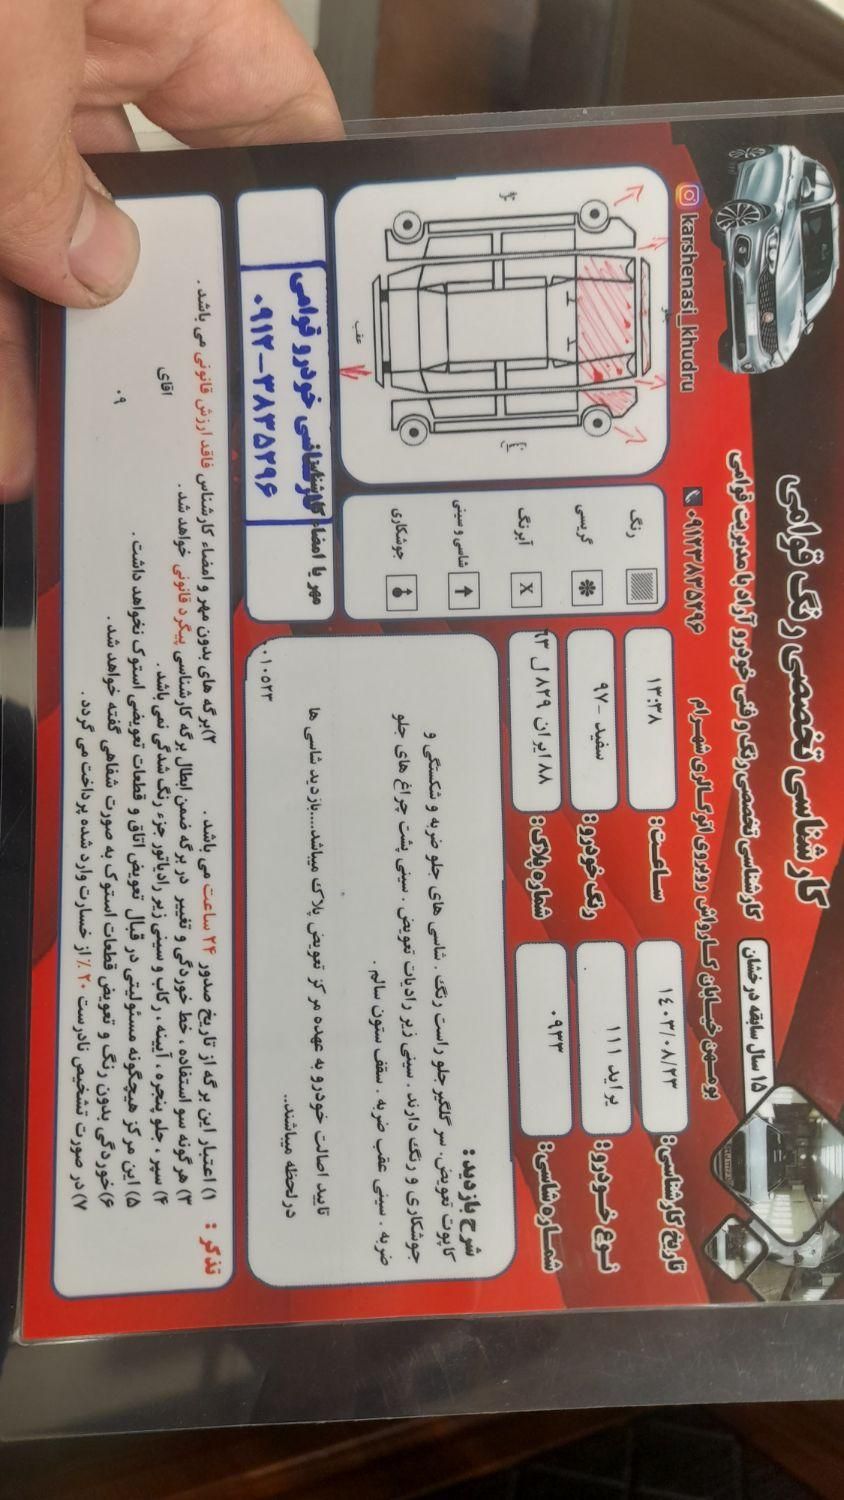 کارشناسی تخصصی رنگ قوامی
کارشناسی تخصصی رنگ و فنی خودرو آراد با مدیریت قوامی
۱۵ سال سابقه درخشان
بومهن خیابان کارواش روبروی اتوگالری شهرام
۰۹۱۲۳۸۳۵۲۹۶
karshenasi_khudru
تاریخ کارشناسی: ۱۴۰۳/۰۸/۲۳
ساعت: ۱۳:۳۸
نوع خودرو: پراید ۱۱۱
رنگ خودرو: سفید -۹۷
شماره شاسی: ۰۹۳۳
شماره پلاک: ۸۸ ایران ۸۲۹ ل ۶۳
رنگ
گریسی
آبرنگ
X
شاسی و سینی
جوشکاری
جلو
عقب
شرح بازدید:
کاپوت تعویض. سر گلگیر جلو راست رنگ . شاسی های جلو ضربه و شکستگی و
جوشکاری و رنگ دارند . سینی زیر رادیات تعویض . سینی پشت چراغ های جلو
ضربه . سینی عقب ضربه . سقف ستون سالم .
تایید اصالت خودرو به عهده مرکز تعویض پلاک میباشد....بازدید شاسی ها
در لحظه میباشند..
۰۱۰۵۲۳
مهر یا امضاء کارشناس
کارشناسی خودرو قوامی
۰۹۱۲-۳۸۳۵۲۹۶
تذکر :
۱) اعتبار این برگه از تاریخ صدور ۲۴ ساعت می باشد .
۲)برگه های بدون مهر و امضاء کارشناس فاقد ارزش قانونی می باشد .
۳) هرگونه سو استفاده، خط خوردگی و تغییر در برگه ضمن ابطال برگه کارشناسی پیگرد قانونی خواهد شد .
۴) سپر ، جلو پنجره ، آیینه ، رکاب و سینی زیر رادیاتور جزء رنگ شدگی نمی باشد .
اقای
۵) این مرکز هیچگونه مسئولیتی در قبال تعویض اتاق و قطعات تعویضی استوک نخواهد داشت .
۰۹
۶)خوردگی بدون رنگ و تعویض قطعات استوک به صورت شفاهی گفته خواهد شد .
۷) در صورت تشخیص نادرست ۲۰٪ از خسارت وارد شده پرداخت می گردد .